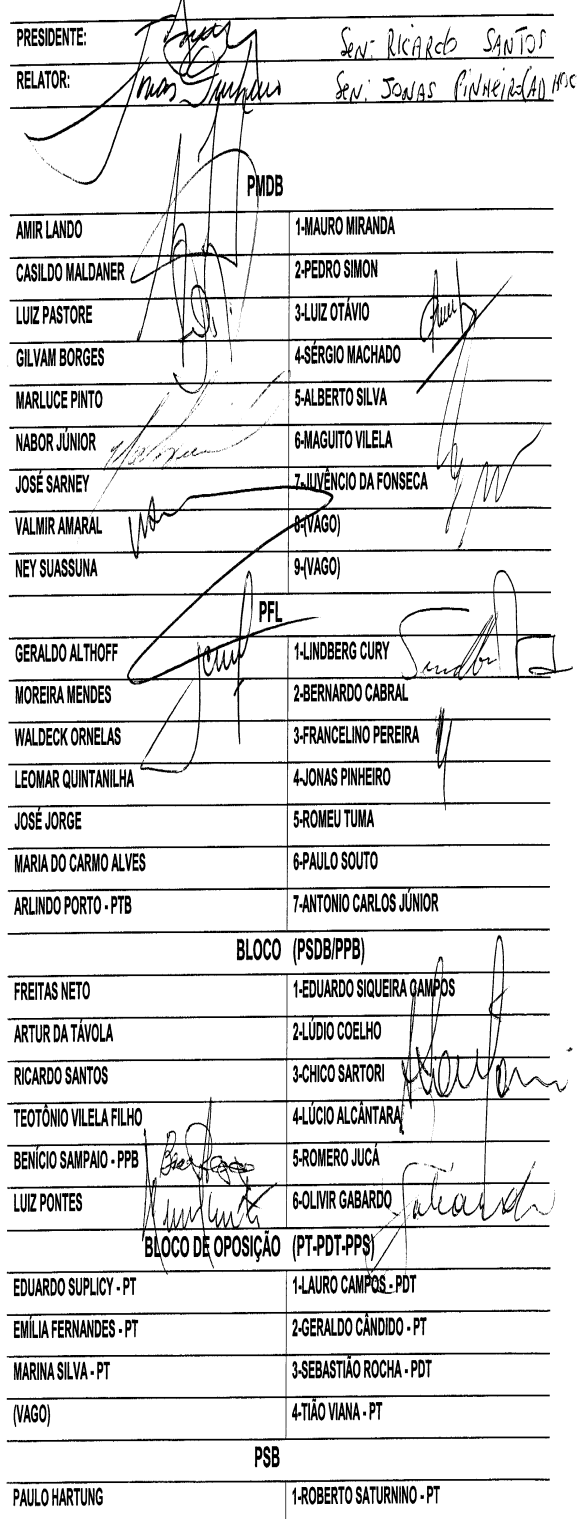 PRESIDENTE: Sen: RICARDO SANTOS
RELATOR: Jonas Pinheiro Sen: JONAS PINHEIRO (AD HOC
PMDB
AMIR LANDO 1-MAURO MIRANDA
CASILDO MALDANER 2-PEDRO SIMON
LUIZ PASTORE 3-LUIZ OTÁVIO
GILVAM BORGES 4-SÉRGIO MACHADO
MARLUCE PINTO 5-ALBERTO SILVA
NABOR JÚNIOR 6-MAGUITO VILELA
JOSÉ SARNEY 7-JUVÊNCIO DA FONSECA
VALMIR AMARAL 8-(VAGO)
NEY SUASSUNA 9-(VAGO)
PFL
GERALDO ALTHOFF 1-LINDBERG CURY
MOREIRA MENDES 2-BERNARDO CABRAL
WALDECK ORNELAS 3-FRANCELINO PEREIRA
LEOMAR QUINTANILHA 4-JONAS PINHEIRO
JOSÉ JORGE 5-ROMEU TUMA
MARIA DO CARMO ALVES 6-PAULO SOUTO
ARLINDO PORTO - PTB 7-ANTONIO CARLOS JÚNIOR
BLOCO (PSDB/PPB)
FREITAS NETO 1-EDUARDO SIQUEIRA CAMPOS
ARTUR DA TÁVOLA 2-LÚDIO COELHO
RICARDO SANTOS 3-CHICO SARTORI
TEOTÔNIO VILELA FILHO 4-LÚCIO ALCÂNTARA
BENÍCIO SAMPAIO - PPB 5-ROMERO JUCÁ
LUIZ PONTES 6-OLIVIR GABARDO Gabardo
BLOCO DE OPOSIÇÃO (PT-PDT-PPS)
EDUARDO SUPLICY - PT 1-LAURO CAMPOS - PDT
EMÍLIA FERNANDES - PT 2-GERALDO CÂNDIDO - PT
MARINA SILVA - PT 3-SEBASTIÃO ROCHA - PDT
(VAGO) 4-TIÃO VIANA - PT
PSB
PAULO HARTUNG 1-ROBERTO SATURNINO - PT